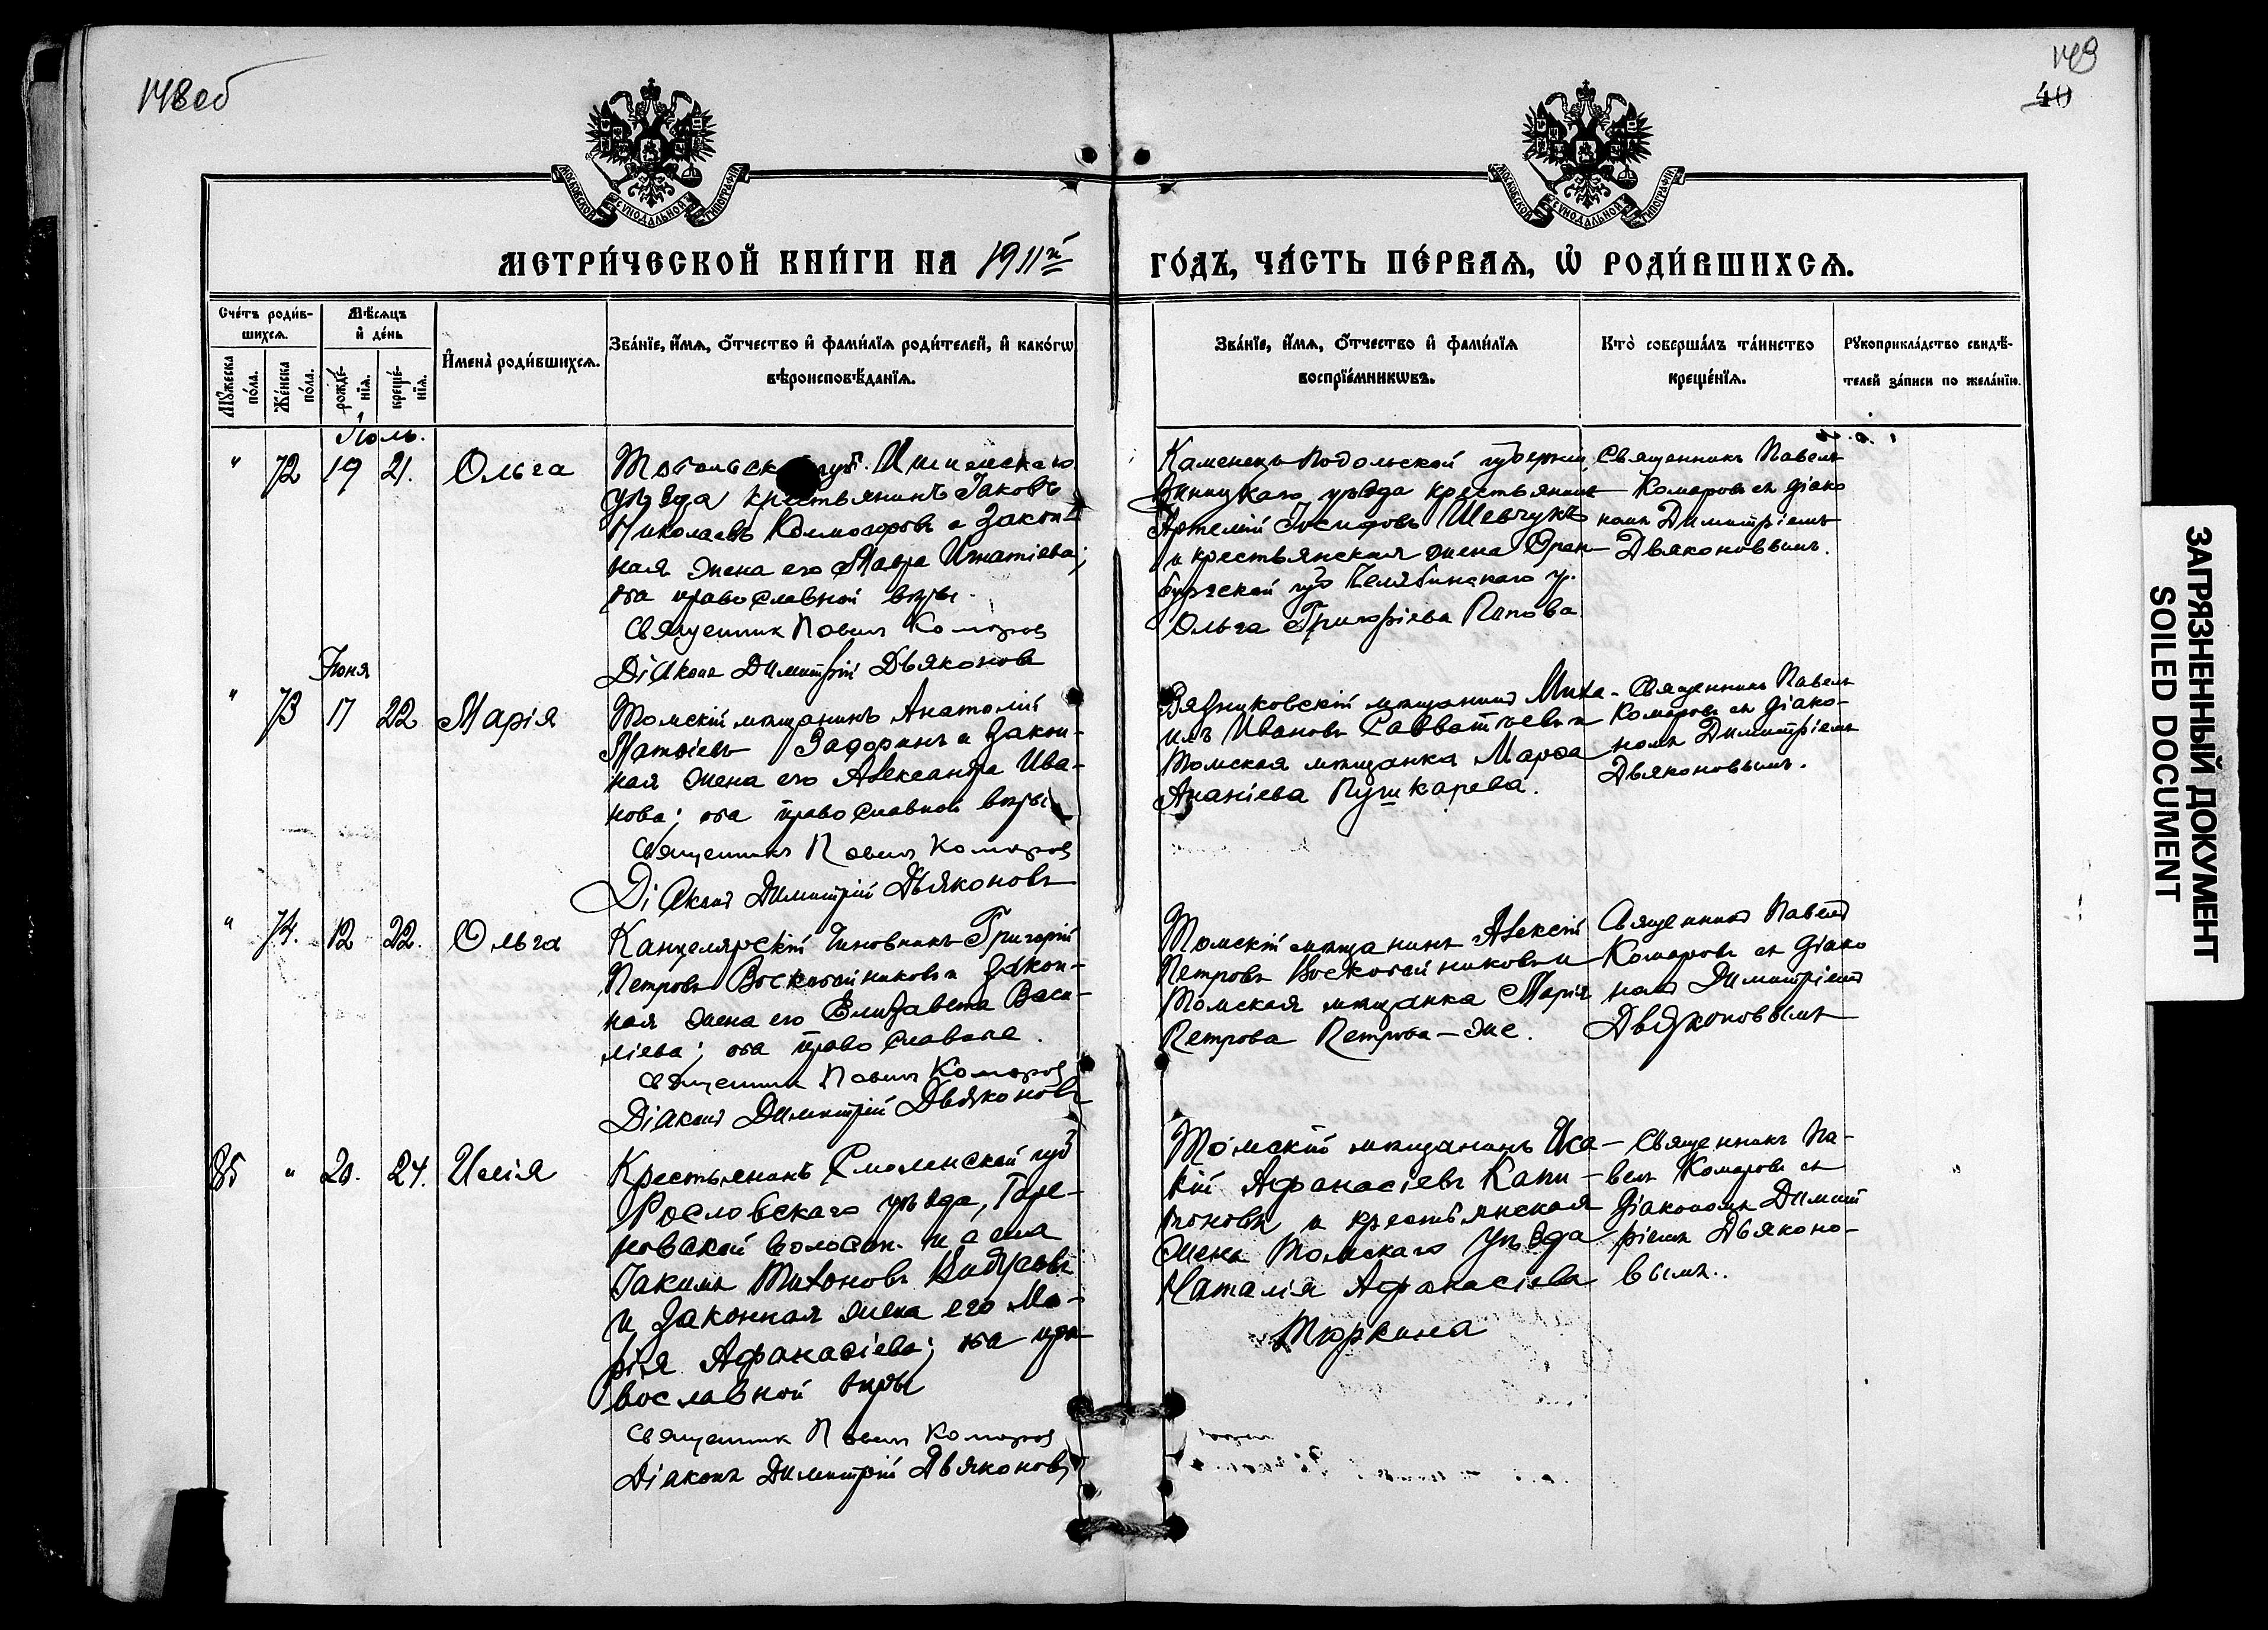 148 об
149
40
МОСКОВСКОЙ СѴНОДАЛЬНОЙ ТИПОГРАФІИ
МОСКОВСКОЙ СѴНОДАЛЬНОЙ ТИПОГРАФІИ
МЕТРИ́ЧЕСКОЙ КНИ́ГИ НА 1911й
ГО́ДЪ, ЧА́СТЬ ПЕ́РВАѦ, Ѡ҆ РОДИ́ВШИХСѦ.
Сче́тъ роди́в-
шихсѧ.
Мꙋ́жеска по́ла.
Же́нска по́ла.
Мѣ́сѧцъ
и҆ де́нь
рожде́-нїѧ.
креще́-нїѧ.
И҆мена̀ роди́вшихсѧ.
Зва́нїе, и҆́мѧ, ѻ҆́тчество и҆ фами́лїѧ роди́телей, и҆ како́гѡ
вѣроисповѣ́данїѧ.
Зва́нїе, и҆́мѧ, ѻ҆́тчество и҆ фами́лїѧ
воспрїе́мникѡвъ.
Кто̀ соверша́лъ та́инство
креще́нїѧ.
Рꙋкоприкла́дство свидѣ́-
телей за́писи по жела́нїю.
Іюль.
" 72 19 21. Ольга
Тобольск губ. Ишимскаго
уѣзда крестьянинъ Іаковъ
Николаевъ Колмогоровъ и закон-
ная жена его Мавра Игнатіева;
оба православной вѣры.
Священник Павел Комаров
Діаконъ Димитрій Дьяконовъ
Каменецъ-Подольской губерніи,
Винницкаго уѣзда крестьянинъ
Артемій Іосифовъ Шевчукъ
и крестьянская жена Орен-
бургской губ Челябинскаго у.
Ольга Григоріева Попова
Священникъ Павелъ
Комаровъ съ діако
номъ Димитріемъ
Дьяконовымъ.
Іюня
" 73 17 22 Марія
Томскій мѣщанинъ Анатолій
Матвіевъ Задоринъ и закон-
ная жена его Александра Ива-
нова; оба православной вѣры
Священникъ Павелъ Комаров
Діаконъ Димитрій Дьяконовъ
Вязниковскій мѣщанинъ Миха-
илъ Ивановъ Савватѣевъ и
томская мѣщанка Марѳа
Ананіева Пушкарева.
Священникъ Павелъ
Комаровъ съ діако-
номъ Димитріемъ
Дьяконовымъ.
" 74. 12 22. Ольга
Канцелярскій чиновникъ Григорій
Петровъ Воскобойниковъ и закон-
ная жена его Елизавета Васи-
ліева; оба православные.
Священник Павел Комаров
Діаконъ Димитрій Дьяконовъ
Томскій мѣщанинъ Алексій
Петровъ Воскобойниковъ и
томская мѣщанка Марія
Петрова Петрова-же.
Священникъ Павелъ
Комаровъ съ діако
номъ Димитріемъ
Дьяконовымъ
85 " 20. 24. Илія
Крестьянинъ Смоленской губ
Рославскаго уѣзда, Горе-
новской волости и села
Іакимъ Тихоновъ
и законная жена его Ма-
рія Афанасіева; оба пра
вославной вѣры
Священник Павел Комаров
Діаконъ Димитрій Дьяконовъ
Томскій мѣщанинъ Иса-
кій Афанасіевъ Капи-
тоновъ и крестьянская
жена Томскаго уѣзда
Наталія Афанасіева
Тюркина
Священникъ Па-
велъ Комаровъ съ
діакономъ Димит
ріемъ Дьяконо-
вымъ.
ЗАГРЯЗНЕННЫЙ ДОКУМЕНТ
SOILED DOCUMENT